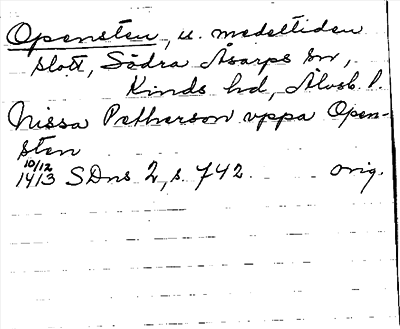 Opensten, u. medeltiden
slott, Södra Åsarps sn,
Kinds hd, Älvsb. l.
Nissa Pætherson vppa Open-
sten
10/12
1413 SDns 2, s. 742. orig.